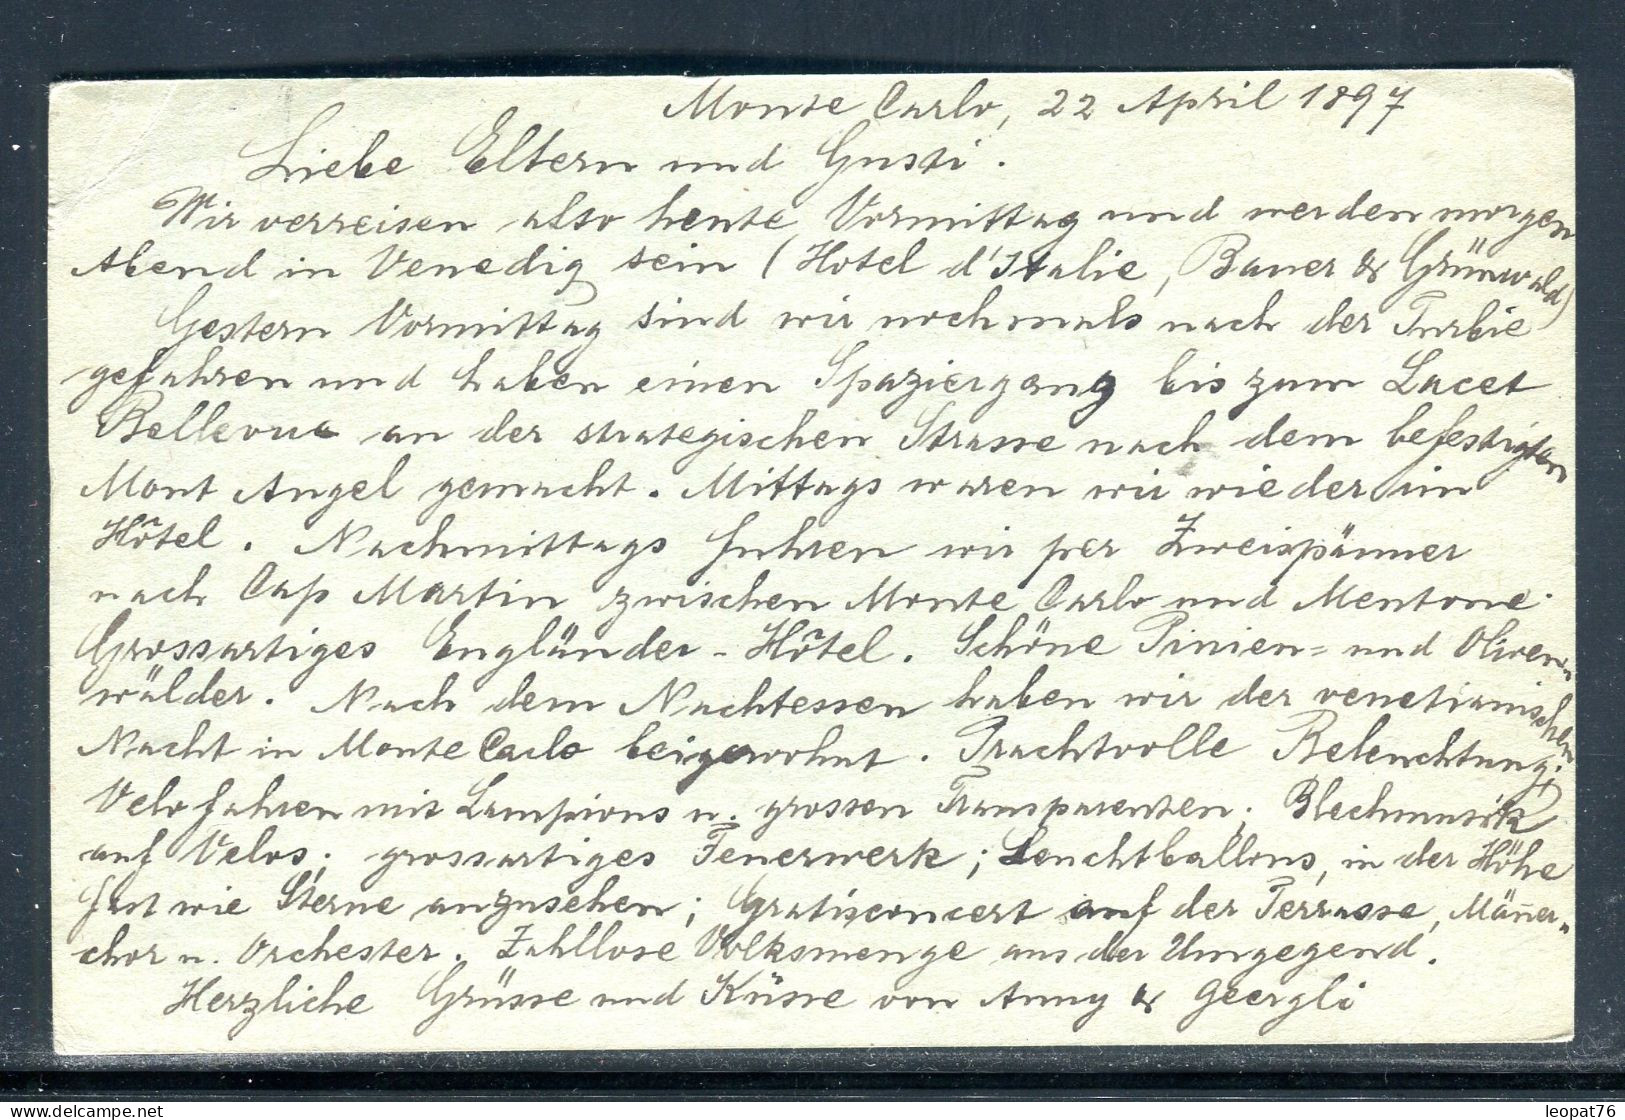 Monte Carlo, 22 April 1897
Liebe Eltern und Gusti.
Wir verreisen also heute Vormittag und werden morgen
Abend in Venedig sein (Hotel d'Italie, Bauer & Grünwald)
Gestern Vormittag sind wir nochmals nach der Turbie
gefahren und haben einen Spaziergang bis zum Lacet
Bellevue an der strategischen Strasse nach dem befestigten
Mont Angel gemacht. Mittags waren wir wieder im
Hôtel. Nachmittags fuhren wir per Zweispänner
nach Cap Martin zwischen Monte Carlo und Mentone.
Grossartiges Engländer-Hôtel. Schöne Pinien= und Oliven=
wälder. Nach dem Nachtessen haben wir der venetianischen
Nacht in Monte Carlo beigewohnt. Prachtvolle Beleuchtung;
Velofahren mit Lampions u. grossen Transparenten; Blechmusik
auf Velos; grossartiges Feuerwerk; Leuchtballons, in der Höhe
fast wie Sterne anzusehen; Gratisconcert auf der Terrasse, Männer=
chor u. Orchester. Zahllose Volksmenge aus der Umgegend.
Herzliche Grüsse und Küsse von Anny & Georgli
delcampe.net
leopat76